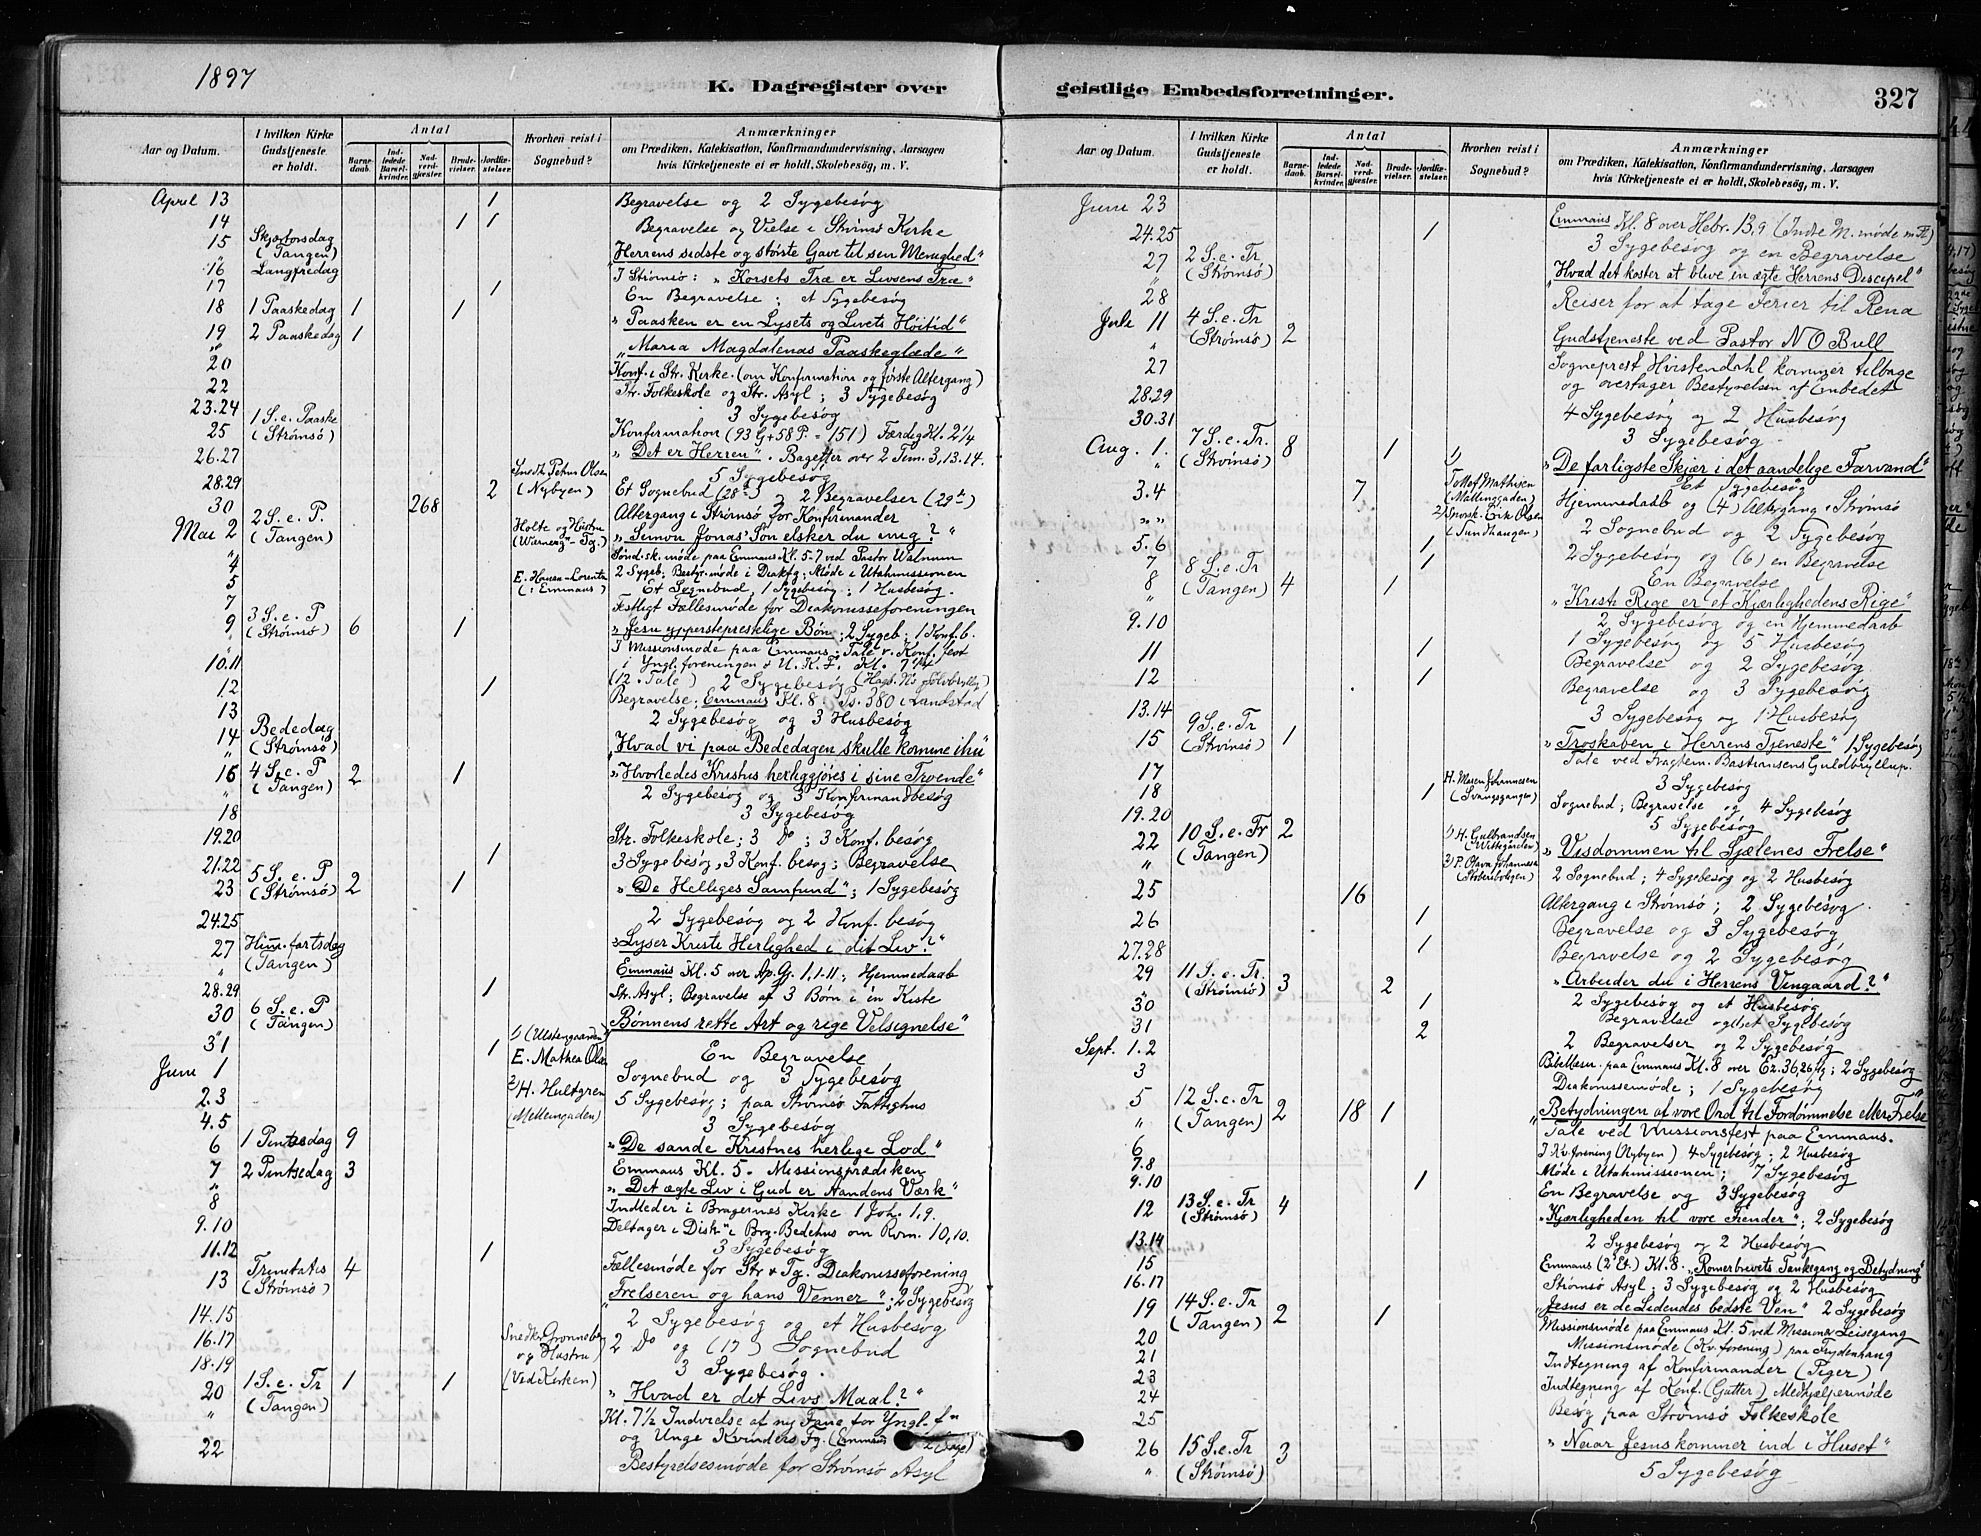 1897
K. Dagregister over
Aar og Datum.
I hvilken Kirke Gudstjeneste er holdt.
Antal
Barnedaab.
Indledede Barselkvinder.
Nadverdgjæster.
Brudevielser.
Jordfæstelser.
Hvorhen reist i Sognebud?
Anmærkninger
om Prædiken, Katekisation, Konfirmandundervisning, Aarsagen
hvis Kirketjeneste ei er holdt, Skolebesøg, m. V.
April 13 1 Begravelse og 2 Sygebesøg
14 1 1 Begravelse og Vielse i Strømsø Kirke
15 Skjærtorsdag (Tangen) Herrens sidste og største Gave til sin Menighed"
16 Langfredag I Strømsø: "Korsets Træ er Livsens Træ"
17 1 En Begravelse; et Sygebesøg
18 1 Paaskedag 1 1 "Paasken er en Lysets og Livets Høitid"
19 2 Paaskedag 1 "Maria Magdalenas Paaskeglæde"
20 Konf. i Str. Kirke. (om Konfirmation og første Altergang)
22 Str. Folkeskole og Str. Asyl; 3 Sygebesøg
23.24 3 Sygebesøg
25 1 S. e. Paaske (Strømsø) Konfirmation (93 G + 58 P. = 151) Færdig Kl. 2¼
"Det er Herren". Bagefter over 2 Tim. 3,13.14.
26.27 5 Sygebesøg
28.29 Petrus Olsen (Nybyen) 2 Et Sognebud (28de) og 2 Begravelser (29de)
30 268 Altergang i Strømsø for Konfirmander
Mai 2 2 S. e. P. (Tangen) Holte og Hustru "Simon Jonas' Søn elsker du mig?"
Sønd.sk. møde paa Emmaus Kl. 5-7 ved Pastor Walnum
4 2 Sygeb; Bestyr.møde i Diakfg; Møde i Utahmissionen
5 E. Hansen-Lorentz (i Emmaus) Et Sognebud, 1 Sygebesøg; 1 Husbesøg.
7 Festligt Fællesmøde for Diakonisseforeningen
9 3 S. e. P (Strømsø) 6 1 "Jesu ypperstepresklige Bøn; 2 Sygeb; 1 Konf. b.
I Missionsmøde paa Emmaus. Tale v. Konf. fest
10.11 i Yngl. foreningen & U. K. F. Kl. 7¼
(12. Tale) 2 Sygebesøg
12 1 Begravelse; Emmaus Kl. 8. Ps. 380 i Landstad
13 2 Sygebesøg og 3 Husbesøg
14 Bededag (Strømsø) "Hvad vi paa Bededagen skulle komme ihu"
16 4 S. e. P (Tangen) 2 1 "Hvorledes Kristus herliggjøres i sine Troende"
2 Sygebesøg og 3 Konfirmandbesøg
18 3 Sygebesøg
19.20 Str. Folkeskole; 3 Do; 3 Konf. besøg
21.22 1 3 Sygebesøg, 3 Konf. besøg; Begravelse
23 5 S. e. P (Strømsø) 2 1 "De Helliges Samfund"; 1 Sygebesøg
24.25 2 Sygebesøg og 2 Konf. besøg
27 Him.fartsdag (Tangen) "Lyser Kristi Herlighed i dit Liv?"
Emmaus Kl. 5 over Ap. Gj. 1,1-11; Hjemmedaab
28.29 1 Str. Asyl; Begravelse af 3 Børn i én Kiste
30 6 S. e. P (Tangen) Bønnens rette Art og rige Velsignelse"
31 1 En Begravelse
Juni 1 E. Mathea Olsen Sognebud og 3 Sygebesøg
2.3 2) H. Hultgren (Mellemgaden) 5 Sygebesøg; paa Strømsø Fattighus
4.5 3 Sygebesøg
6 1 Pintsedag 9 "De sande Kristnes herlige Lod"
7 2 Pintsedag 3 Emmaus Kl. 5. Missionsprædiken
"Det ægte Liv i Gud er Aandens Værk"
8 Indleder i Bragernes Kirke 1 Joh. 1,9.
9.10 Deltager i Disk. i Brg. Bedehus om Rom. 10,10.
11.12 1 3 Sygebesøg
13 Trinitatis (Strømsø) 4 Fællesmøde for Str & Tg. Diakonisseforening
"Frelseren og hans Venner"; 2 Sygebesøg
14.15 2 Sygebesøg og et Husbesøg
16.17 Snedker Grønneberg og Hustru (Ved Kirken) 2 Do og (17) Sognebud
18.19 3 Sygebesøg.
20 1 S. e. Tr (Tangen) 1 1 "Hvad er det Livs Maal?"
Kl. 7½ Indvielse af ny Fane for Yngl. f
og Unge Kvinders Fg. (Emmaus
22 Bestyrelsesmøde for Strømsø Asyl
geistlige Embedsforretninger. 327
Aar og Datum.
I hvilken Kirke Gudstjeneste er holdt.
Antal
Barnedaab.
Indledede Barselkvinder.
Nadverdgjæster.
Brudevielser.
Jordfæstelser.
Hvorhen reist i Sognebud?
Anmærkninger
om Prædiken, Katekisation, Konfirmandundervisning, Aarsagen
hvis Kirketjeneste ei er holdt, Skolebesøg, m. V.
Juni 23 Emmaus Kl. 8 over Hebr. 13,9 (Indre M. møde
24.25 1 3 Sygebesøg og en Begravelse
27 2 S. e. Tr (Strømsø) "Hvad det koster at blive en ægte Herrens Discipel"
28 Reiser for at tage Ferier til Rena
Juli 11 4 S. e. Tr (Strømsø) 2 Gudstjeneste ved Pastor N O Bull
27 Sogneprest Hvistendahl kommer tilbage
og overtager Bestyrelsen af Embedet
28.29 4 Sygebesøg og 2 Husbesøg
30.31 3 Sygebesøg
Aug. 1. 7 S. e. Tr. (Strømsø) 8 1 "De farligste Skjær i det aandelige Farvand"
Et Sygebesøg
3.4 7 1) Tollef Mathisen Hjemmedaab og (4) Altergang i Strømsø
2) Erik Olsen (Sundhaugen) 2 Sognebud og 2 Sygebesøg
5.6 1 2 Sygebesøg og (6) en Begravelse
7 1 En Begravelse
8 8 S. e. Tr (Tangen) 4 1 "Kristi Rige er et Kjærlighedens Rige"
2 Sygebesøg og en Hjemmedaab
9.10 1 Sygebesøg og 5 Husbesøg
11 1 Begravelse og 2 Sygebesøg
12 1 Begravelse og 3 Sygebesøg
13.14 3 Sygebesøg og 1 Husbesøg
15 9 S. e. Tr (Strømsø) 1 "Troskaben i Herrens Tjeneste" 1 Sygebesøg
Tale ved Fragtem. Bastiansens Guldbryllup.
17 3 Sygebesøg
18 1 H. Maren Johannesen (Svangsgangen) Sognebud; Begravelse og 4 Sygebesøg
19.20 5 Sygebesøg
22 10 S. e. Tr (Tangen) 2 1) H. Gulbrandsen "Visdommen til Sjælenes Frelse"
2) P. Olava Johannesen 2 Sognebud; 4 Sygebesøg og 2 Husbesøg
25 16 Altergang i Strømsø; 2 Sygebesøg
26 1 Begravelse og 3 Sygebesøg
27.28 1 Begravelse og 2 Sygebesøg
29 11 S. e. Tr. (Strømsø) 3 2 "Arbeider du i Herrens Vingaard?"
2 Sygebesøg og et Husbesøg
30 1 Begravelse og et Sygebesøg
31 2 2 Begravelser og 2 Sygebesøg
Sept. 1.2 Bibellæsn. paa Emmaus Kl. 8 over Ez. 36,26 flg; 2 Sygebesøg
3 Diakonissemøde; 1 Sygebesøg
5 12 S. e. Tr (Tangen) 2 18 1 "Betydningen af vore Ord til Fordømmelse eller Frelse"
Tale ved Missionsfest paa Emmaus.
6 I Kv.forening (Nybyen) 4 Sygebesøg; 2 Husbesøg
7.8 Møde i Utahmissionen; 7 Sygebesøg
9.10 1 En Begravelse og 3 Sygebesøg
12 13 S. e. Tr (Strømsø) 4 "Kjærligheden til vore Fiender"; 2 Sygebesøg
13.14 2 Sygebesøg og 2 Husbesøg
15 Emmaus (2 Et.) Kl. 8. "Romerbrevets Tankegang og Betydning"
16.17 Strømsø Asyl; 3 Sygebesøg og 2 Husbesøg
19 14 S. e. Tr (Tangen) 2 1 "Jesus er de Lidendes bedste Ven" 2 Sygebesøg
Missionsmøde paa Emmaus Kl. 5 ved Missionær Leisegang
20 Missionsmøde (Kv. forening) paa Frydenhaug
21 Indtegning af Konfirmander (Piger)
23 Indtegning af Konf. (Gutter) Medhjælpermøde
24
25 Besøg paa Strømsø Folkeskole
26 15 S. e. Tr (Strømsø) 3 "Naar Jesus kommer ind i Huset"
5 Sygebesøg